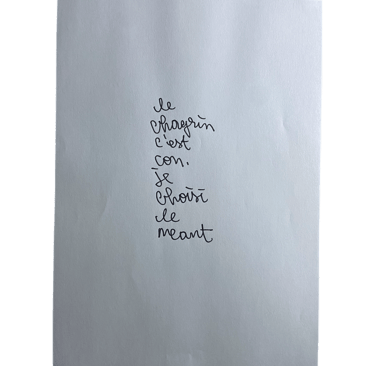 le
chagrin
c'est
con.
je
choisi
le
meant